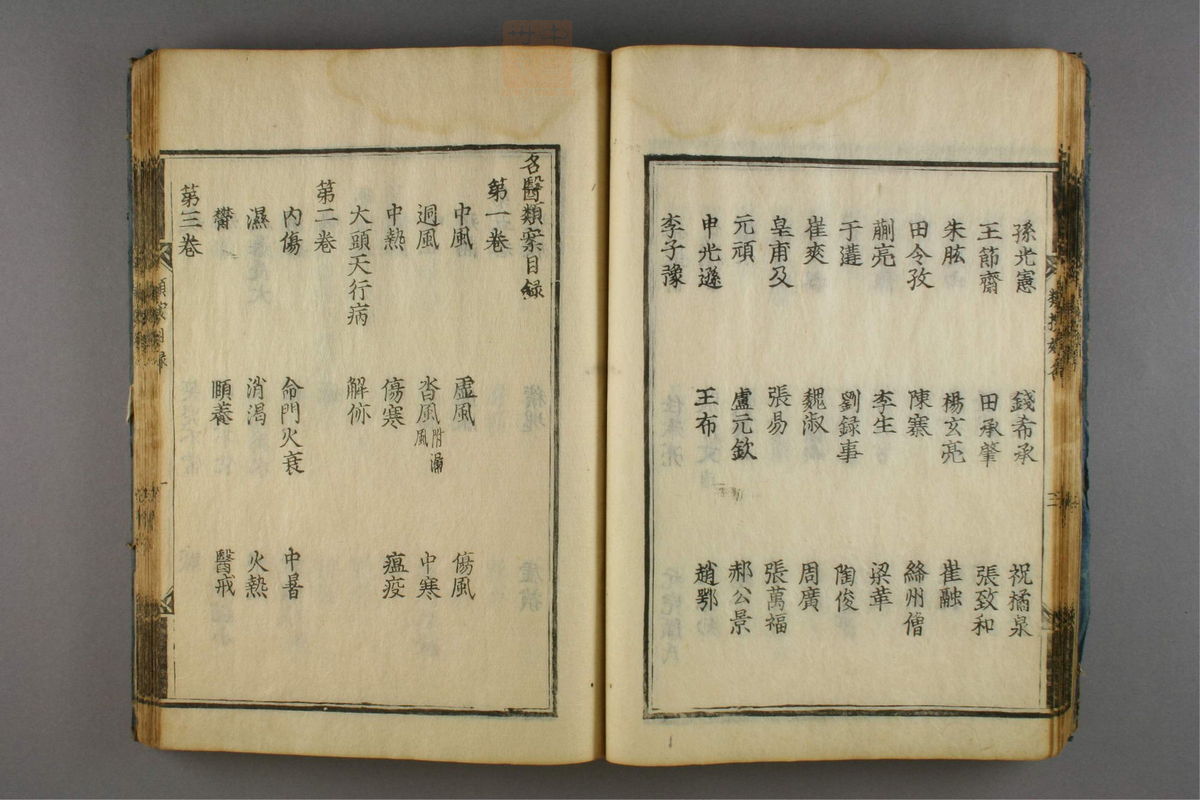 孫光憲 錢希承 祝橘泉
王節齋 田承肇 張致和
朱肱 楊玄亮 崔融
田令孜 陳寨 絳州僧
蒯亮 李生 梁革
于遘 劉錄事 陶俊
崔爽 魏淑 周廣
皇甫及 張昜 張萬福
元頏 盧元欽 郝公景
申光遜 王布 趙鄂
李子豫
名醫類案目録
第一卷
中風 虛風 傷風
迵風 沓風附漏風 中寒
中熱 傷寒 瘟疫
大頭天行病 解㑊
第二卷
內傷 命門火衰 中暑
濕 消渴 火熱
欝 頤養 醫戒
第三卷